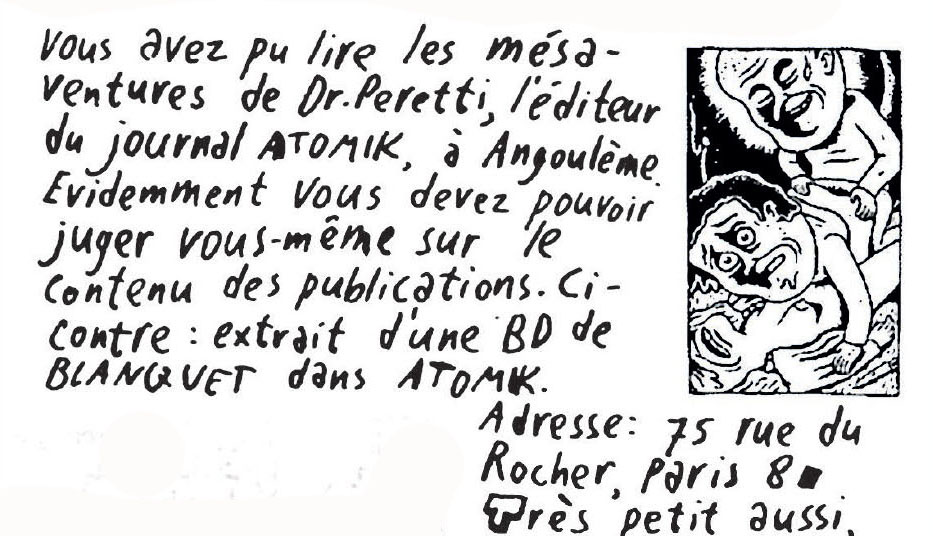 Vous avez pu lire les mésa-
ventures de Dr.Peretti, l'éditeur
du journal ATOMIK, à Angoulème.
Evidemment vous devez pouvoir
juger vous-même sur le
contenu des publications. Ci-
contre : extrait d'une BD de
BLANQUET dans ATOMIK.
Adresse: 75 rue du
Rocher, Paris 8■
Très petit aussi,